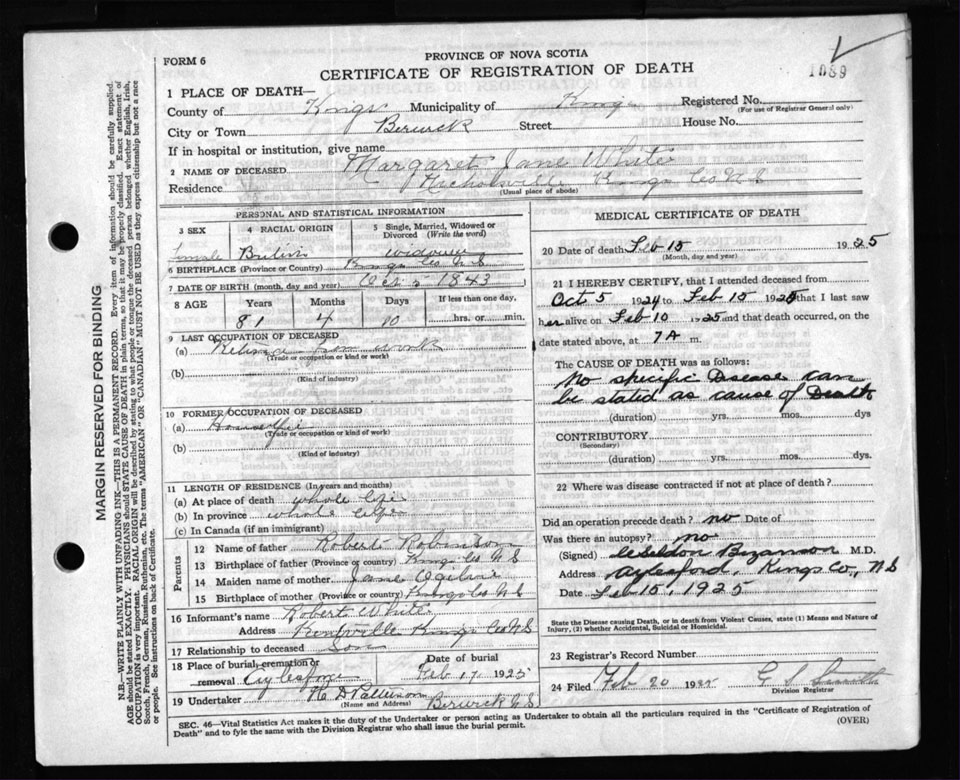 FORM 6
PROVINCE OF NOVA SCOTIA
CERTIFICATE OF REGISTRATION OF DEATH
1089
1 PLACE OF DEATH—
County of Kings Municipality of Kings Registered No.
(For use of Registrar General only)
City or Town Berwick Street House No.
If in hospital or institution, give name
2 NAME OF DECEASED Margaret Jane White
Residence Nicholsville Kings Co N S
(Usual place of abode)
PERSONAL AND STATISTICAL INFORMATION
3 SEX 4 RACIAL ORIGIN 5 Single, Married, Widowed or Divorced (Write the word)
female British widow
6 BIRTHPLACE (Province or Country) Kings Co N S
7 DATE OF BIRTH (month, day and year) Oct 5 1843
8 AGE Years Months Days If less than one day,
81 4 10 hrs. or min.
9 LAST OCCUPATION OF DECEASED
(a) Retired from work
(Trade or occupation or kind or work)
(b)
(Kind of industry)
10 FORMER OCCUPATION OF DECEASED
(a) Housewife
(Trade or occupation or kind of work)
(b)
(Kind of industry)
11 LENGTH OF RESIDENCE (In years and months)
(a) At place of death whole life
(b) In province whole life
(c) In Canada (if an immigrant)
Parents
12 Name of father Robert Robinson
13 Birthplace of father (Province or Country) Kings Co N S
14 Maiden name of mother Jane Ogilvie
15 Birthplace of mother (Province or Country) Kings Co N S
16 Informant's name Robert White
Address Kentville Kings Co N S
17 Relationship to deceased Son
18 Place of burial, cremation or removal Aylesford Date of burial Feb 17, 1925
19 Undertaker Berwick N S
(Name and Address)
MEDICAL CERTIFICATE OF DEATH
20 Date of death Feb 15 1925
(Month, day and year)
21 I HEREBY CERTIFY, that I attended deceased from
Oct 5 1924 to Feb 15 1925 that I last saw
her alive on Feb 10 1925 and that death occurred, on the
date stated above, at 7 A m.
The CAUSE OF DEATH was as follows:
No specific Disease can
be stated as cause of Death
(duration) yrs. mos. dys
CONTRIBUTORY
(Secondary)
(duration) yrs. mos. dys.
22 Where was disease contracted if not at place of death?
Did an operation precede death? no Date of
Was there an autopsy? no
(Signed) M.D.
Address Aylesford, Kings Co, N S
Date Feb 15, 1925
State the Disease causing Death, or in death from Violent Causes, state (1) Means and Nature of
Injury, (2) whether Accidental, Suicidal or Homicidal.
23 Registrar's Record Number
24 Filed Feb 20 1925
Division Registrar
SEC. 46—Vital Statistics Act makes it the duty of the Undertaker or person acting as Undertaker to obtain all the particulars required in the "Certificate of Registration of
Death" and to fyle the same with the Division Registrar who shall issue the burial permit.
(OVER)
MARGIN RESERVED FOR BINDING
N.B.—WRITE PLAINLY WITH UNFADING INK—THIS IS A PERMANENT RECORD. Every item of information should be carefully supplied.
AGE should be stated EXACTLY. PHYSICIANS should STATE CAUSE OF DEATH in plain terms, so that it may be properly classified. Exact statement of
OCCUPATION is very important. RACIAL ORIGIN will be described by stating to what people or tongue the deceased person belonged whether English, Irish,
Scotch, French, German, Russian, Ruthenian, etc. The terms "AMERICAN" or "CANADIAN" MUST NOT BE USED as they express citizenship but not a race
or people. See instructions on back of Certificate.